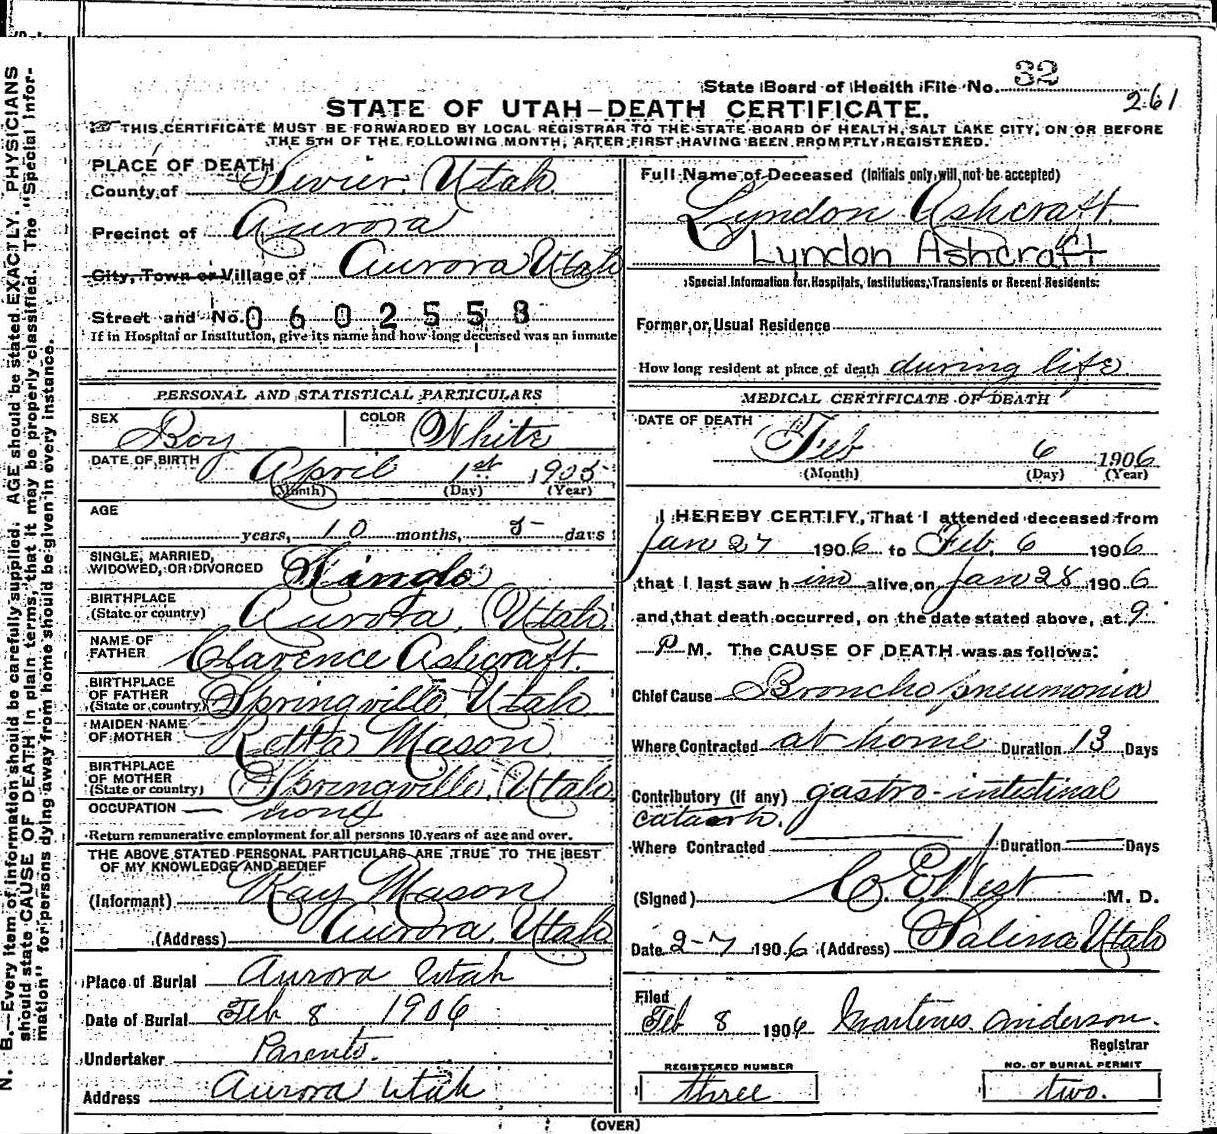 State Board of Health File No. 32
261
STATE OF UTAH—DEATH CERTIFICATE.
THIS CERTIFICATE MUST BE FORWARDED BY LOCAL REGISTRAR TO THE STATE BOARD OF HEALTH, SALT LAKE CITY, ON OR BEFORE
THE 5TH OF THE FOLLOWING MONTH, AFTER FIRST HAVING BEEN PROMPTLY REGISTERED.
N. B.—Every item of information should be carefully supplied. AGE should be stated EXACTLY. PHYSICIANS
should state CAUSE OF DEATH in plain terms, that it may be properly classified. The "Special Infor-
mation" for persons dying away from home should be given in every instance.
PLACE OF DEATH
County of Sevier, Utah
Precinct of Aurora
City, Town or Village of Aurora Utah
Street and No. 0602558
If in Hospital or Institution, give its name and how long deceased was an inmate
PERSONAL AND STATISTICAL PARTICULARS
SEX Boy COLOR White
DATE OF BIRTH April 1st 1905
(Month) (Day) (Year)
AGE
years, 10 months, 5 days
SINGLE, MARRIED,
WIDOWED, OR DIVORCED Single
BIRTHPLACE
(State or country) Aurora, Utah
NAME OF
FATHER Clarence Ashcraft.
BIRTHPLACE
OF FATHER
(State or country) Springville, Utah
MAIDEN NAME
OF MOTHER Retta Mason
BIRTHPLACE
OF MOTHER
(State or country) Springville, Utah
OCCUPATION — none
Return remunerative employment for all persons 10 years of age and over.
THE ABOVE STATED PERSONAL PARTICULARS ARE TRUE TO THE BEST
OF MY KNOWLEDGE AND BEDIEF
(Informant) Ray Mason
(Address) Aurora, Utah
Place of Burial Aurora Utah
Date of Burial Feb 8 1906
Undertaker Parents.
Address Aurora Utah
Full Name of Deceased (Initials only will not be accepted)
Lyndon Ashcraft
Lyndon Ashcraft
Special Information for Hospitals, Institutions, Transients or Recent Residents:
Former or Usual Residence
How long resident at place of death during life
MEDICAL CERTIFICATE OF DEATH
DATE OF DEATH
Feb 6 1906
(Month) (Day) (Year)
I HEREBY CERTIFY, That I attended deceased from
Jan 27 1906 to Feb. 6 1906
that I last saw him alive on Jan 28 1906
and that death occurred, on the date stated above, at 9
P M. The CAUSE OF DEATH was as follows:
Chief Cause Broncho pneumonia
Where Contracted at home Duration 13 Days
Contributory (if any) gastro-intestinal
catarrh.
Where Contracted Duration Days
(Signed) C. E. West M. D.
Date 2-7 1906 (Address) Salina Utah
Filed
Feb 8 1906 Martenus Anderson.
Registrar
REGISTERED NUMBER
three
NO. OF BURIAL PERMIT
two.
(OVER)